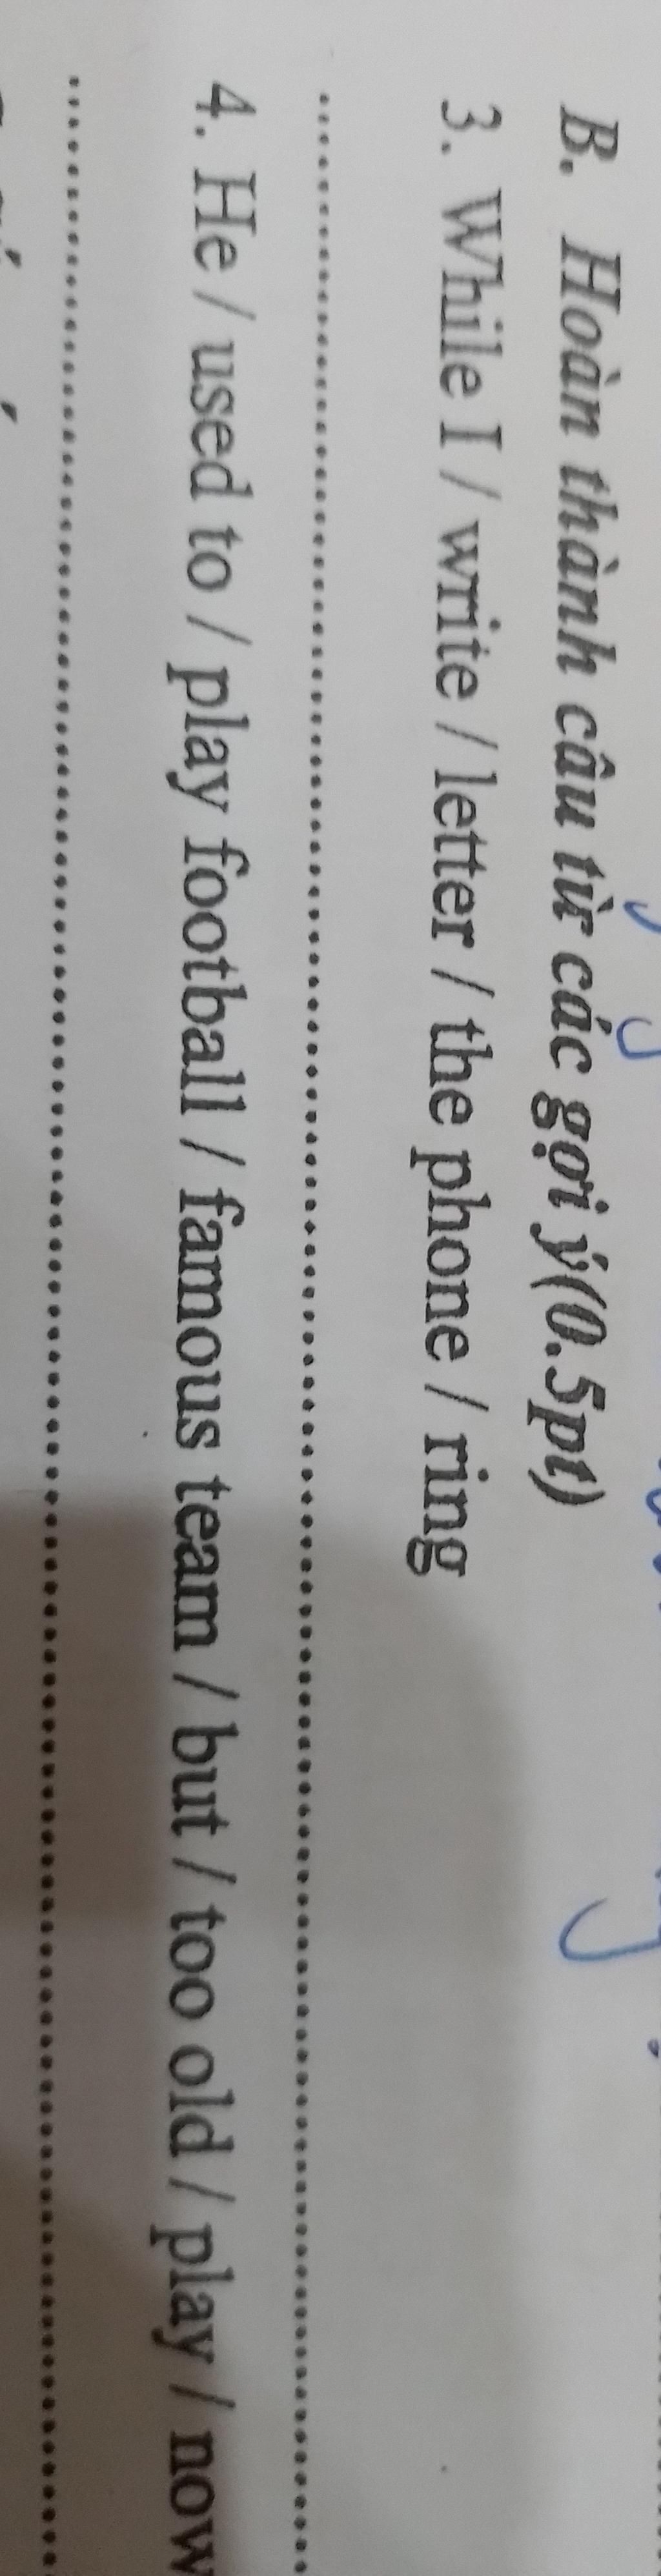 B. Hoàn thành câu từ các gợi ý(0.5pt)
3. While I / write / letter / the phone / ring
4. He / used to / play football / famous team / but / too old / play / now